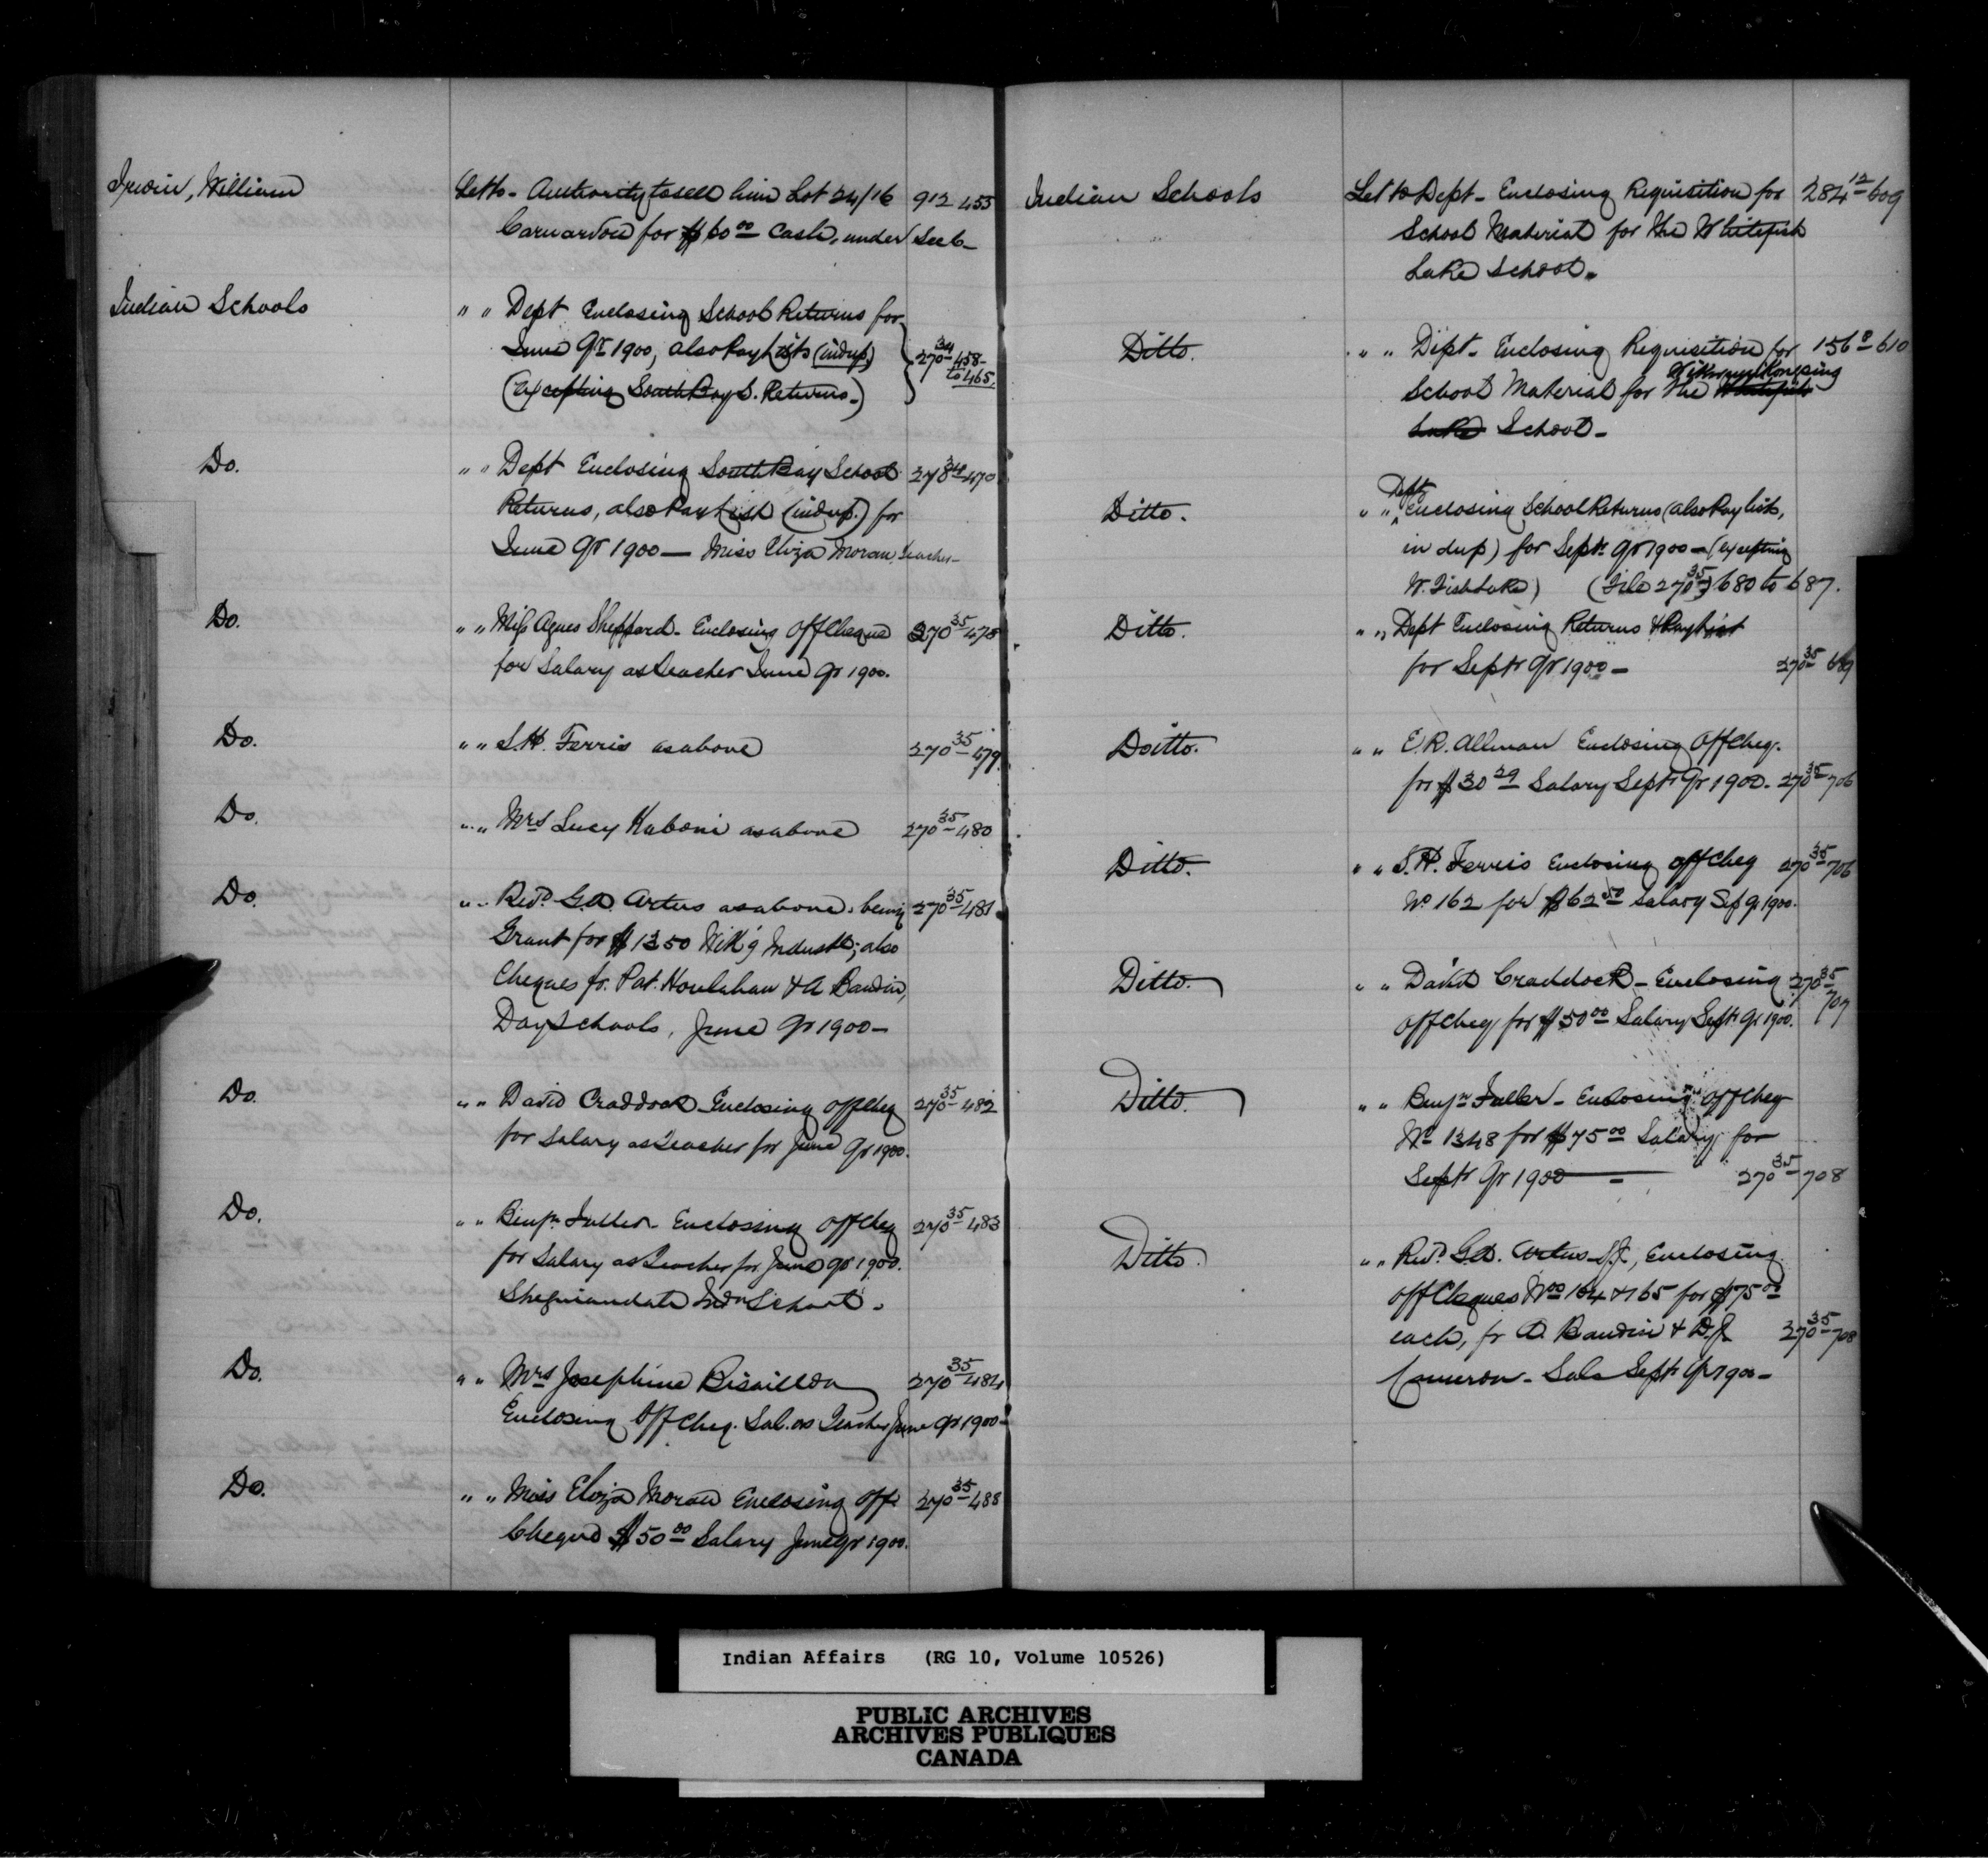 Irwin, William
Let to - Authority to sell him Lot 24/16 912 455
Carnarvon for $60.00 Cash, under Sec 6 -
Indian Schools
" " Dept Enclosing School Returns for
June Qr 1900, also Paylists (in dup) 270 34 458 -
(excepting South Bay S. Returns -) to 465.
Do.
" " Dept Enclosing South Bay School 278 34 470
Returns, also Paylist (in dup.) for
June Qr 1900 — Miss Eliza Moran, Teacher -
Do.
" " Miss Agnes Sheppard - Enclosing Off Cheque 270 35 478
for Salary as Teacher June Qr 1900.
Do.
" " S.H. Ferris as above 270 35 479
Do.
" " Mrs Lucy Kaboni as above 270 35 480
Do.
" " Revd. G.A. Artus as above, being 270 35 481
Grant for $1350 Wik'g Industl; also
Cheques fr. Pat. Houlahan & A Baudin,
Day Schools, June Qr 1900 -
Do.
" " David Craddock - Enclosing Off Cheq 270 35 482
for Salary as Teacher for June Qr 1900.
Do.
" " Benjn. Fuller - Enclosing Off Cheq 270 35 483
for Salary as Teacher for June Qr 1900.
Sheguiandah Indn School.
Do.
" " Mrs Josephine Bisaillon 270 35 484
Enclosing Off Cheq. Sal. as Teacher June Qr 1900 -
Do.
" " Miss Eliza Moran Enclosing Off 270 35 488
Cheque $50.00 Salary June Qr 1900.
Indian Schools
Let to Dept - Enclosing Requisition for 284 12 609
School Material for the Whitefish
Lake School.
Ditto.
" " Dept - Enclosing Requisition for 156 610
School Material for the Whitefish
Lake School -
Ditto.
Dept
" " Enclosing School Returns (also Paylists,
in dup) for Septr. Qr 1900 - (excepting
W. Fish Lake) (File 270 35) 680 to 687.
Ditto.
" " Dept Enclosing Returns & Paylist
for Septr Qr 1900 - 270 35
Doitto.
" " E.R. Allman Enclosing Off Cheq.
for $30.29 Salary Septr Qr 1900. 270 35 706
Ditto.
" " S.H. Ferris Enclosing Off Cheq 270 35 706
No 162 for $62.50 Salary Sep q. 1900.
Ditto.
" " David Craddock - Enclosing 270 35
Off Cheq for $50.00 Salary Septr. Qr 1900. 707
Ditto.
" " Benjn Fuller - Enclosing Off Cheq
No 1348 for $75.00 Salary for
Septr Qr 1900 - 270 35 708
Ditto.
" " Revd. G.A. Artus S.J., Enclosing
Off Cheques Nos 164 & 165 for $75.00
each, fr A. Baudin & D.J. 270 35 708
Cameron - Sal Septr Qr 1900 -
Indian Affairs (RG 10, Volume 10526)
PUBLIC ARCHIVES
ARCHIVES PUBLIQUES
CANADA